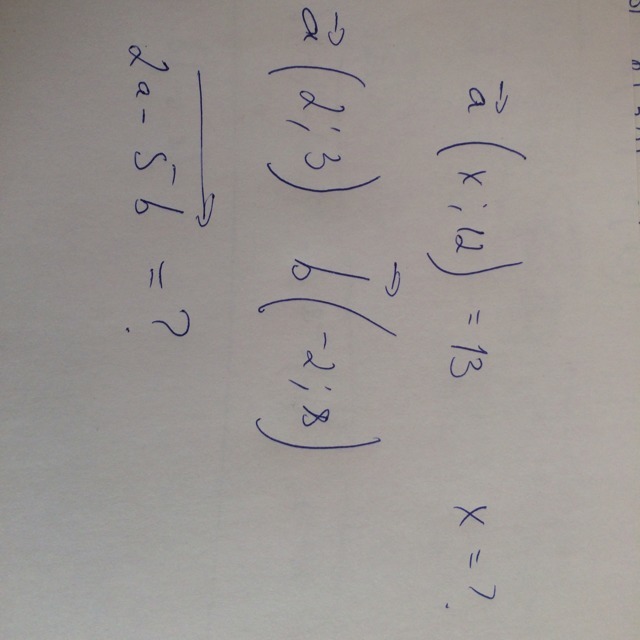 a⃗ (x; 12) = 13 x = ?
a⃗ (2; 3) b⃗ (-2; 8)
2a - 5b = ?